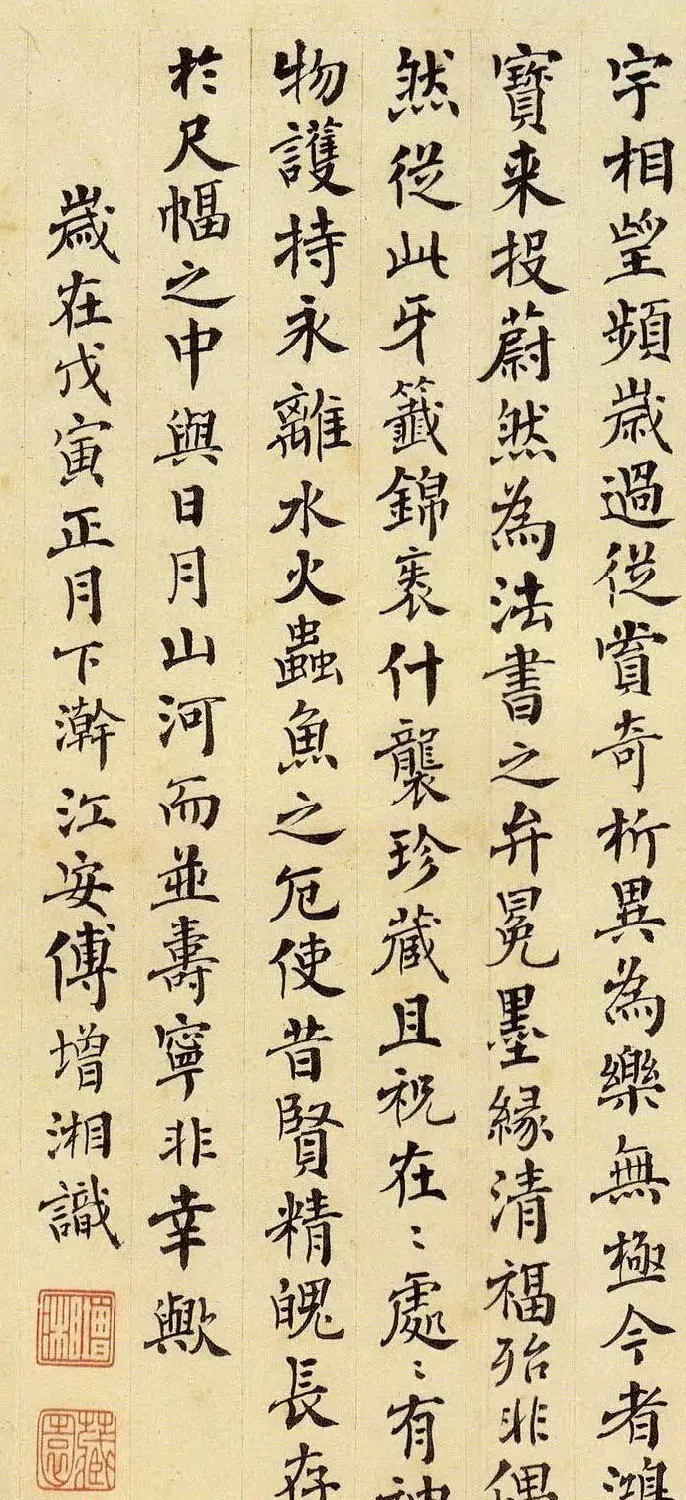 宇相望頻歲過從賞奇析異為樂無極今者鴻
寶来投蔚然為法書之弁冕墨緣清福殆非偶
然從此牙籤錦裹什襲珍藏且祝在〻處〻有神
物護持永離水火蟲魚之厄使昔賢精魄長存
於尺幅之中與日月山河而並壽寧非幸歟
歲在戊寅正月下澣江安傅增湘識
增湘
藏園